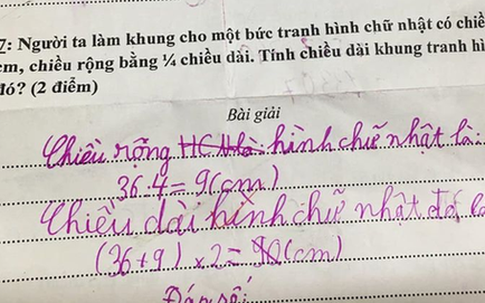 7: Người ta làm khung cho một bức tranh hình chữ nhật có chiề
cm, chiều rộng bằng ¼ chiều dài. Tính chiều dài khung tranh hì
đó? (2 điểm)
Bài giải
Chiều rỗng HCN là: hình chữ nhật là:
36:4=9(cm)
Chiều dài hình chữ nhật đó là
(36+9)×2=90(cm)
Đáp số: